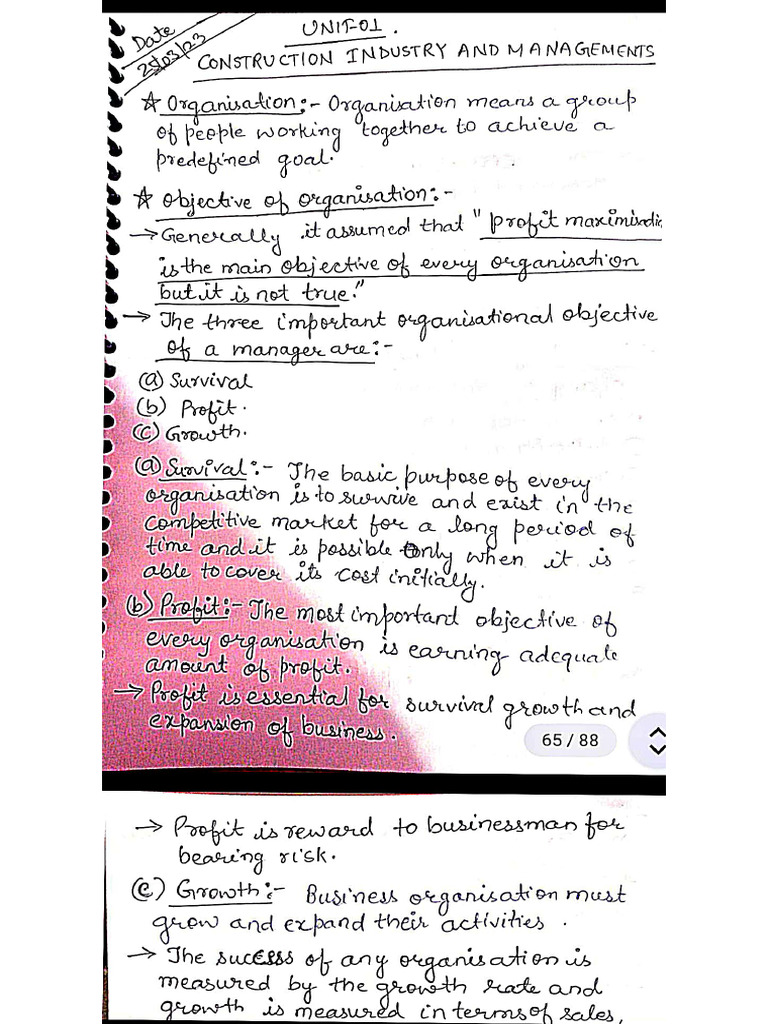 Date
25/03/23
UNIT-01.
CONSTRUCTION INDUSTRY AND MANAGEMENTS
☆ Organisation:- Organisation means a group
of people working together to achieve a
predefined goal.
☆ Objective of organisation:-
→ Generally it assumed that "profit
is the main objective of every organisation
but it is not true."
→ The three important organisational objective
of a manager are:-
(a) Survival
(b) Profit.
(c) Growth.
(a) Survival:- The basic purpose of every
organisation is to survive and exist in the
competitive market for a long period of
time and it is possible only when it is
able to cover its cost initially.
(b) Profit:- The most important objective of
every organisation is earning adequate
amount of profit.
→ Profit is essential for survival growth and
expansion of business.
65 / 88
→ Profit is reward to businessman for
bearing risk.
(c) Growth:- Business organisation must
grow and expand their activities.
→ The success of any organisation is
measured by the growth rate and
growth is measured in terms of sales,